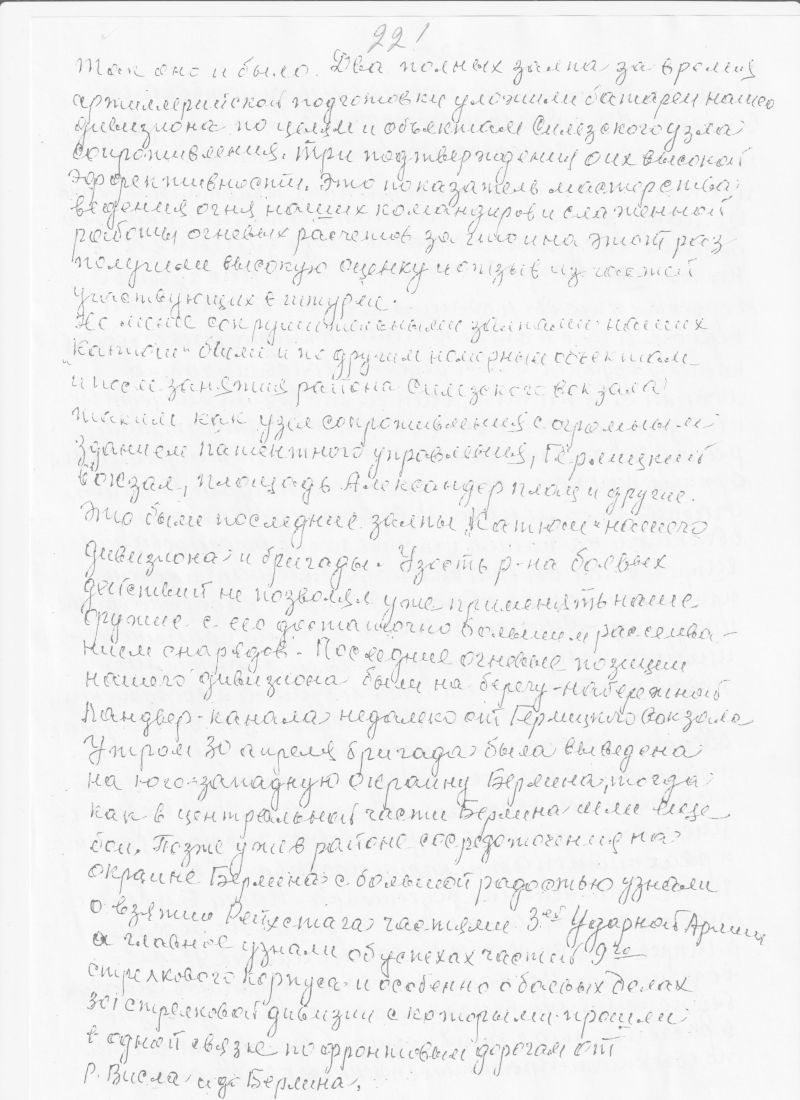 221
Так оно и было. Два полных залпа за время
артиллерийской подготовки уложили батареи нашего
дивизиона по целям и объектам Силезского узла
сопротивления. Три подтверждения о их высокой
эффективности. Это показатель мастерства
ведения огня наших командиров и слаженной
работы огневых расчетов за что и на этот раз
получили высокую оценку и отзыв из частей
участвующих в штурме.
Не мение сокрушительными залпами наших
"катюш" били и по другим номерным объектам
и после занятия района Силезского вокзала
таким как узел сопротивления с огромным
зданием патентного управления, Герлицкий
вокзал, площадь Александер плац и другие.
Это были последние залпы "Катюш" нашего
дивизиона и бригады. Узость р-на боевых
действий не позволял уже применять наше
оружие с его достаточно большим рассеива-
нием снарядов. Последние огневые позиции
нашего дивизиона были на берегу-набережной
Ландвер-канала недалеко от Герлицкого вокзала
Утром 30 апреля бригада была выведена
на юго-западную окраину Берлина, тогда
как в центральной части Берлина шли еще
бои. Позже уже в районе сосредоточения на
окраине Берлина с большой радостью узнали
о взятии Рейхстага частями 3ей Ударной Армии
а главное узнали об успехах частей 9го
стрелкового корпуса и особенно о боевых делах
301 стрелковой дивизии с которыми прошли
в одной связке по фронтовым дорогам от
р. Висла и до Берлина.